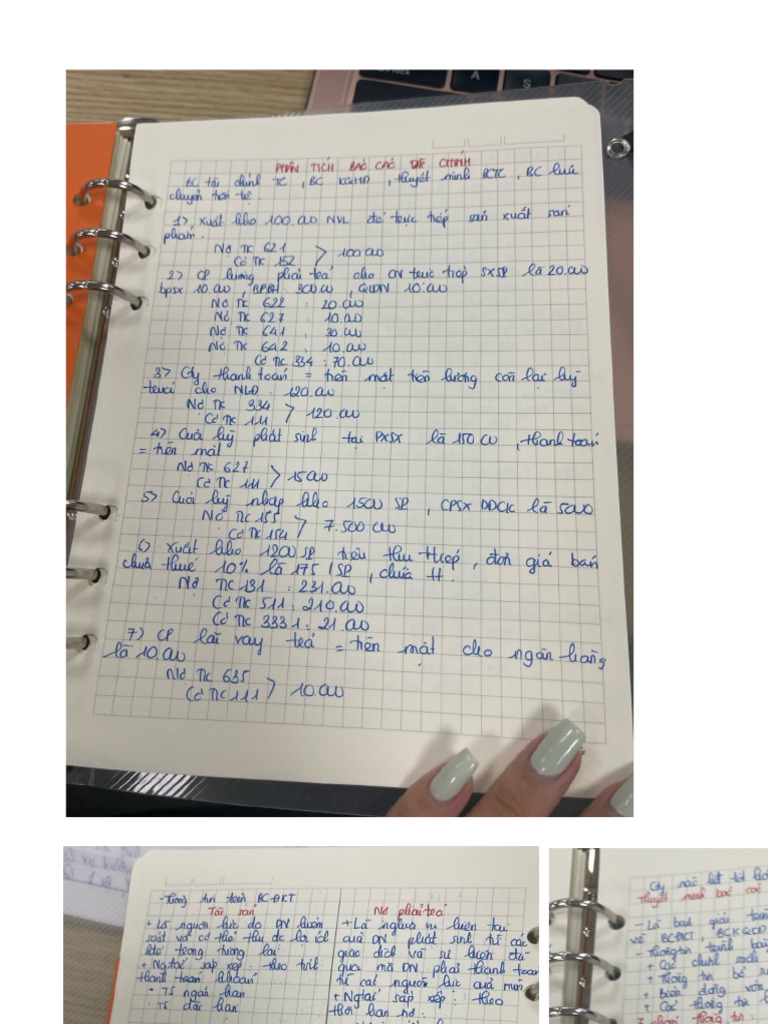 PHÂN TÍCH BÁO CÁO TÀI CHÍNH
BC tài chính TC, BC KQHĐ, thuyết minh BCTC, BC lưu
chuyển tiền tệ.
1) Xuất kho 100.000 NVL để trực tiếp sản xuất sản
phẩm.
Nợ TK 621
Có TK 152 > 100.000
2) CP lương phải trả cho CN trực tiếp SXSP là 20.000
bpsx 10.000, BPBH: 30.000, QLDN 10.000
Nợ TK 622 : 20.000
Nợ TK 627 : 10.000
Nợ TK 641 : 30.000
Nợ TK 642 : 10.000
Có TK 334 : 70.000
3) Cty thanh toán = tiền mặt tiền lương còn lại kỳ
trước cho NLĐ : 120.000
Nợ TK 334
Có TK 111 > 120.000
4) Cuối kỳ phát sinh tại PXSX là 15.000, thanh toán
= tiền mặt
Nợ TK 627
Có TK 111 > 15.000
5) Cuối kỳ nhập kho 1500 SP, CPSX DDCK là 5000
Nợ TK 155
Có TK 154 > 7.500.000
6) Xuất kho 1200 SP tiêu thụ, đơn giá bán
chưa thuế 10% là 175 / SP, chưa tt.
Nợ TK 131 : 231.000
Có TK 511 : 210.000
Có TK 3331 : 21.000
7) CP lãi vay trả = tiền mặt cho ngân hàng
là 10.000
Nợ TK 635
Có TK 111 > 10.000
- Thông tin trên BCĐKT
Tài sản
+ Là nguồn lực do DN kiểm
soát và có thể thu đc lợi ích
kte trong tương lai
+ Ngtắc sắp xếp theo tính
thanh toán khoản
- TS ngắn hạn
- TS dài hạn
Nợ phải trả
+ Là nghĩa vụ hiện tại
của DN phát sinh từ các
giao dịch và sự kiện đã
qua mà DN phải thanh toán
từ các nguồn lực của mình
+ Ngtắc sắp xếp : theo
thời hạn nợ.
Cty nào
thuyết minh báo cáo
- Là bản giải trình
về BCĐKT BCKQKD
- Thông tin trình bày
+ Các chính sách
+ Thông tin bổ
+ Biến động vốn
+ Các thông tin